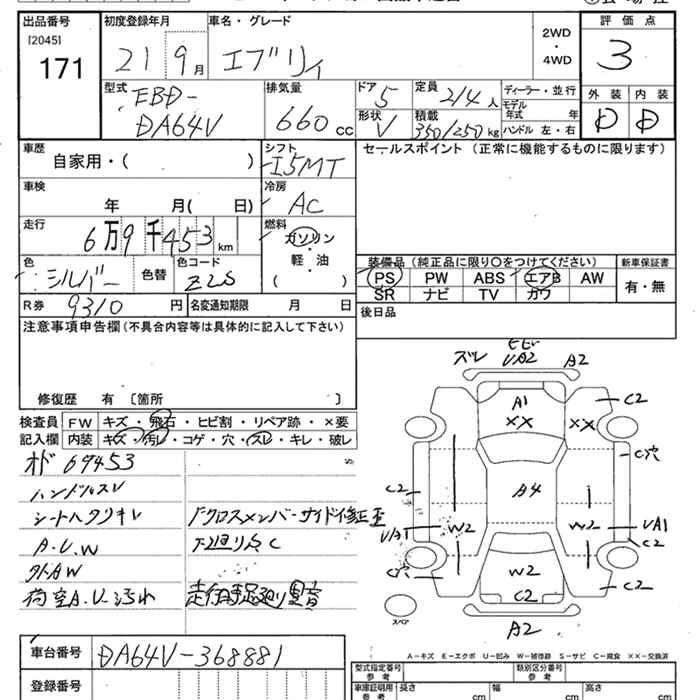 出品番号 初度登録年月 車名・グレード 2WD・4WD 評価点
[2045]
171 21 9月 エブリィ 3
型式 排気量 ドア 定員 ディーラー・並行 外装 内装
EBD-DA64V 660cc 5 2/4人 モデル年式 年
形状 V 積載 350/250kg ハンドル 左・右 D D
車歴 シフト セールスポイント(正常に機能するものに限ります)
自家用・( ) I5MT
車検 冷房
年 月( 日) AC
走行 燃料
6万9千453km ガソリン
軽・油
( )
色 色替 色コード 装備品(純正品に限り○をつけてください) 新車保証書
シルバー Z2S PS PW ABS エアB AW 有・無
R券 9310円 名変通知期限 月 日 SR ナビ TV カワ
注意事項申告欄(不具合内容等は具体的に記入して下さい) 後日品
修復歴 有 〔箇所 〕
検査員記入欄 FW キズ・飛石・ヒビ割・リペア跡・×要
内装 キズ・汚レ・コゲ・穴・スレ・キレ・破レ
オド 69453
ハンドルスレ
シートヘタリキレ
A.U.W
外AW
荷室A.U-汚れ
クロスメンバーサイド修正歪
下廻りC
ズレ UA2 A2
A1 C2
XX XX
C穴
C2 A4
UA1 W2 W2 UA1
C2
C穴 W2 C2
C2
スペア
A2
A-キズ E-エクボ U-凹み W-補修跡 S-サビ C-腐食 XX-交換済
車台番号 DA64V-368881
登録番号
型式指定番号 参考 類別区分番号 参考
車庫証明用 参考 長さ cm 幅 cm 高さ cm